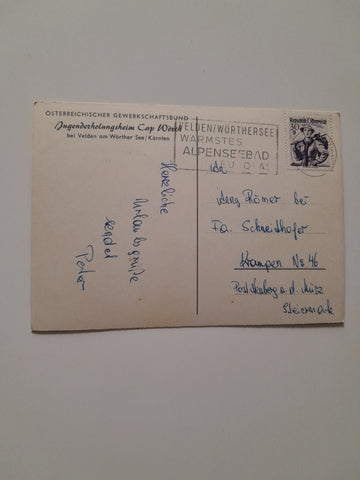 ÖSTERREICHISCHER GEWERKSCHAFTSBUND
Jugenderholungsheim Cap Wörth
bei Velden am Wörther See/Kärnten
VELDEN/WÖRTHERSEE
WÄRMSTES
ALPENSEEBAD
REPUBLIK ÖSTERREICH
Herzliche
Urlaubsgrüße
sendet
Peter
Römer bei
Fa. Schneidhofer
Krampen № 46
Post Neuberg a. d. Mürz
Steiermark